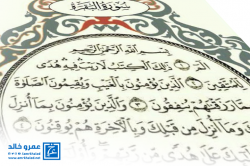 سُورَةُ الْبَقَرَةِ
بِسْمِ اللَّهِ الرَّحْمَٰنِ الرَّحِيمِ
الٓمٓ ذَٰلِكَ الْكِتَٰبُ لَا رَيْبَ فِيهِ هُدًى
لِّلْمُتَّقِينَ الَّذِينَ يُؤْمِنُونَ بِالْغَيْبِ وَيُقِيمُونَ الصَّلَوٰةَ
رَزَقْنَٰهُمْ يُنفِقُونَ وَالَّذِينَ يُؤْمِنُونَ بِمَا أُنزِلَ
وَمَا أُنزِلَ مِن قَبْلِكَ وَبِالْآخِرَةِ هُمْ يُوقِنُونَ
عمرو خالد